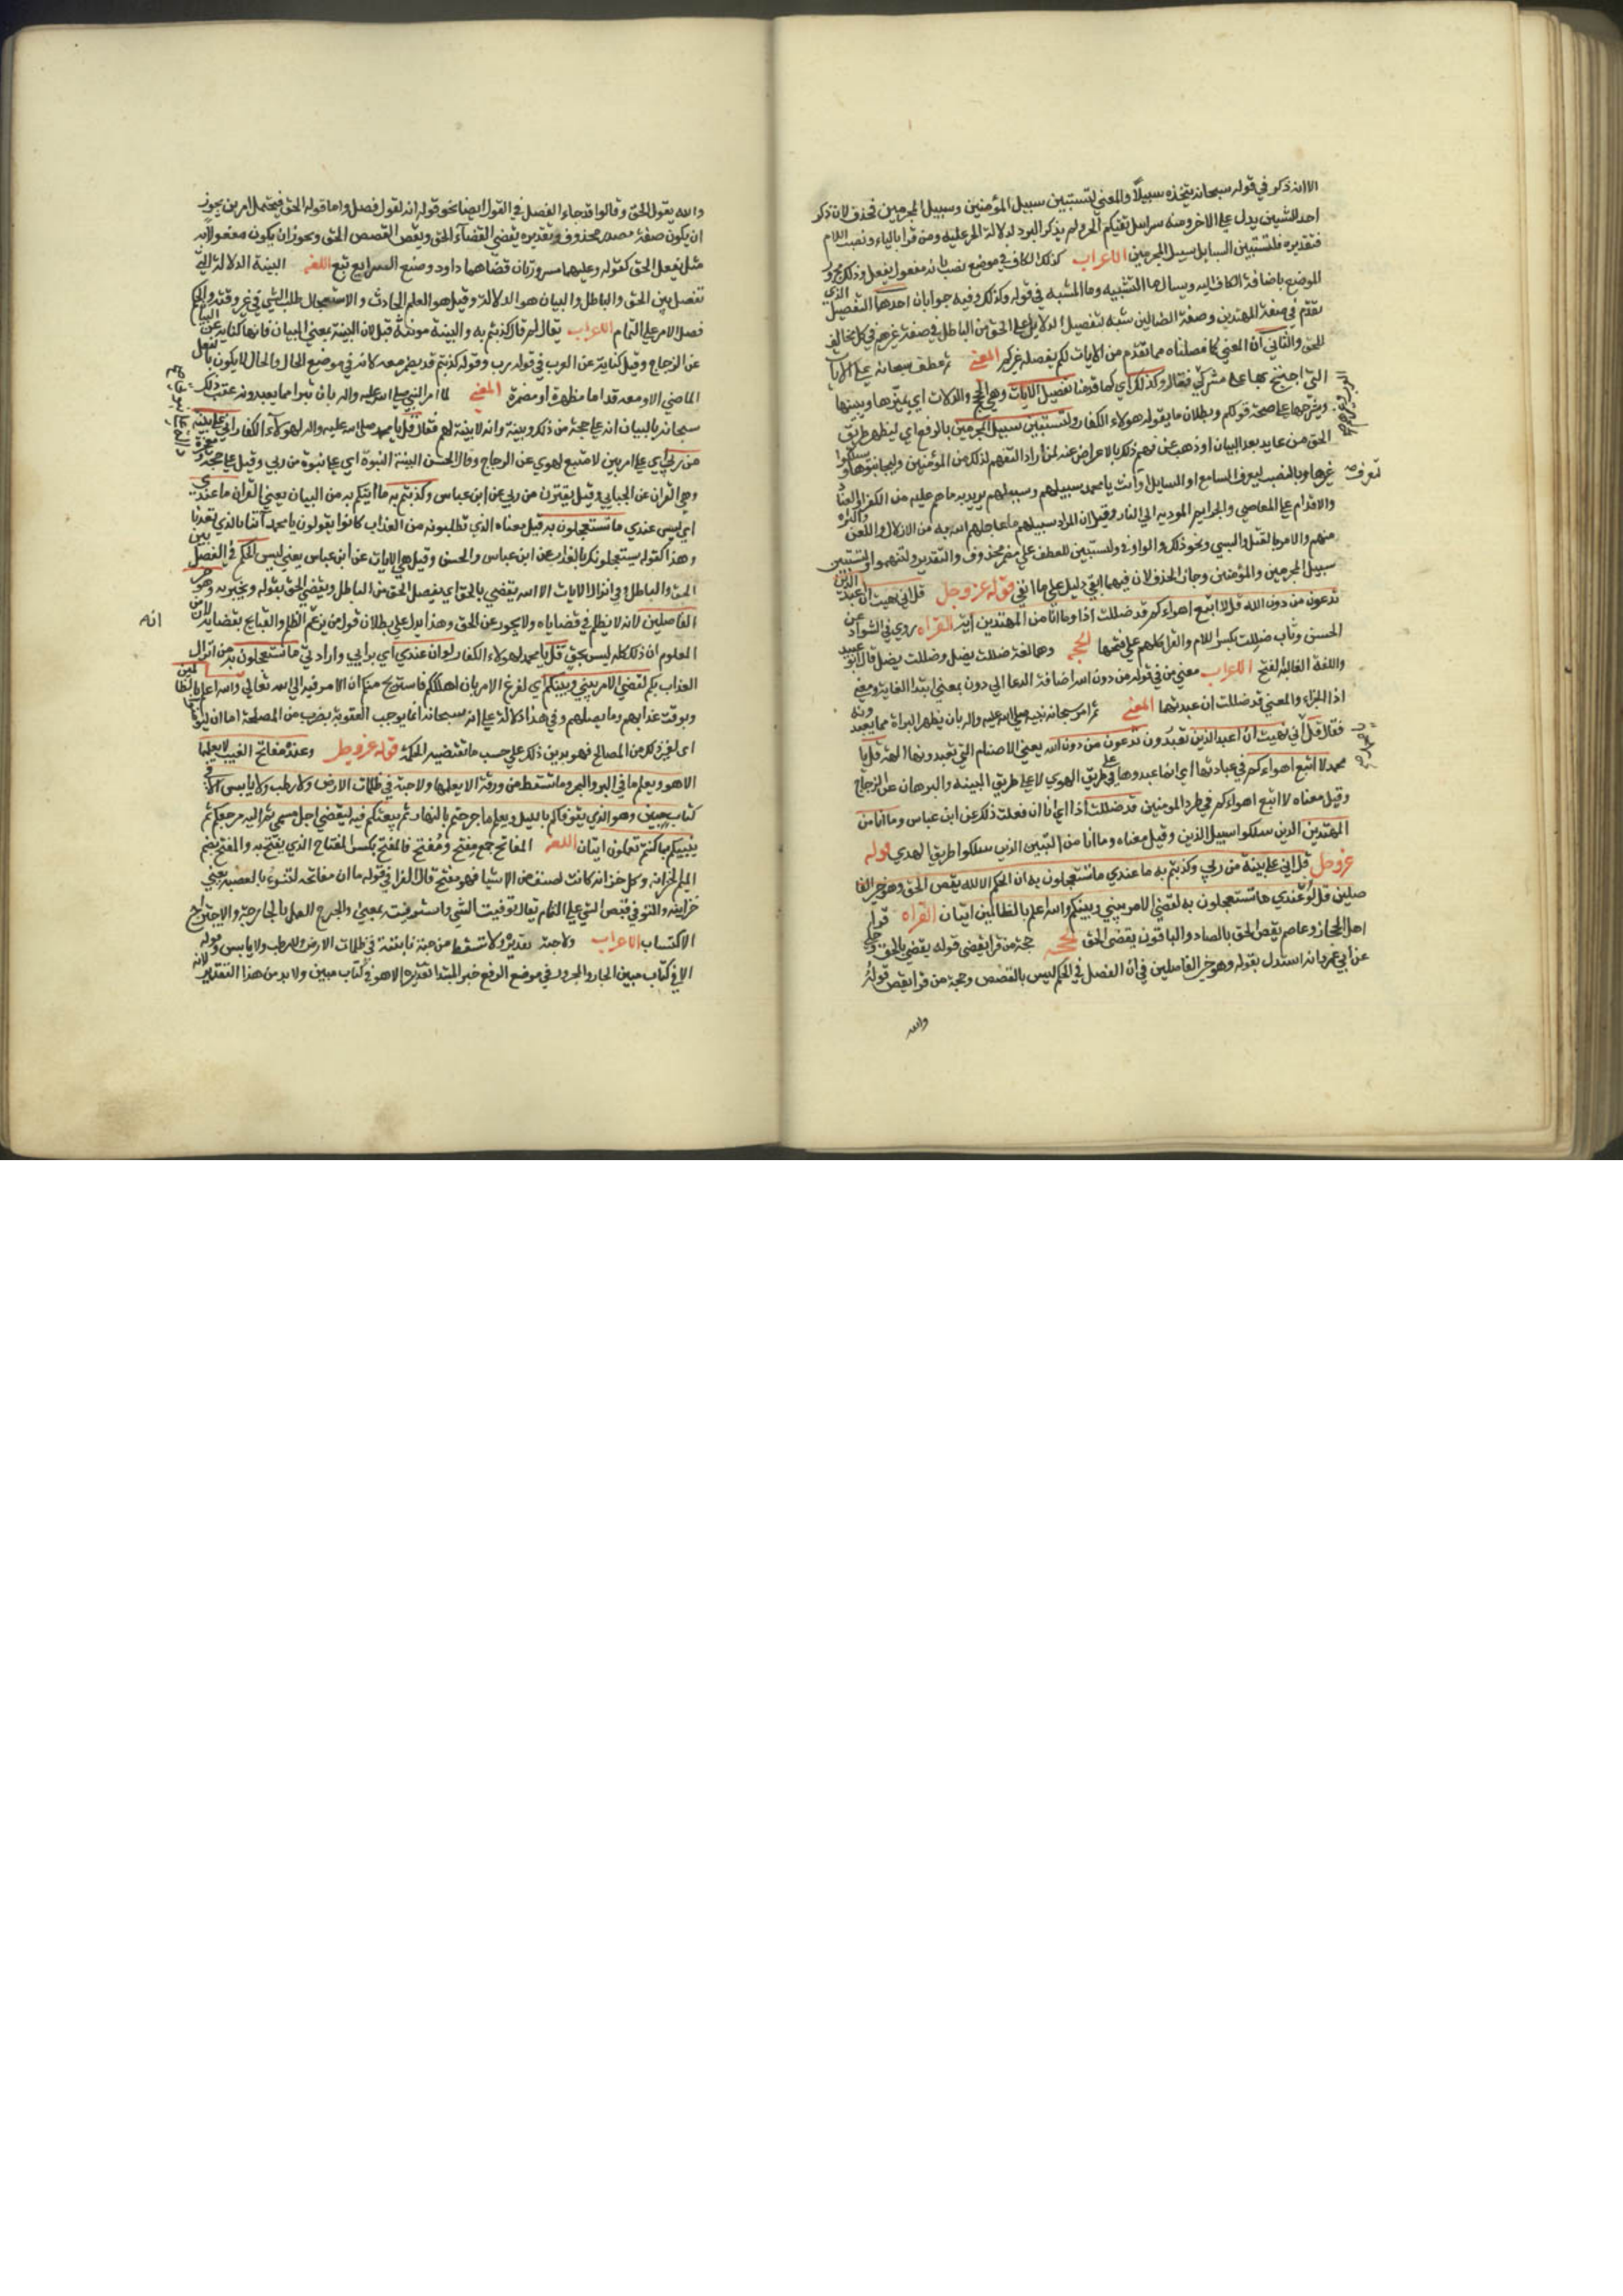 الا انه ذكر في قوله سبحانه يتخذه سبيلا والمعني لتستبين سبيل المؤمنين وسبيل المجرمين فحذف لان ذكر
احد الشيئين يدل علي الاخر ومثله سرابيل تقيكم الحر ولم يذكر البرد لدلالة الحر عليه ومن قرا بالياء ونصب اللام
فتقديره فلتستبين السبيل سبيل المجرمين الاعراب كذلك الكاف في موضع نصب بانه مفعول يفصل وذلك مجرور
الموضع باضافة الكاف اليه ويسال ما التشبيه وما المشبه في قوله وكذلك وفيه جوابان احدهما التفصيل الذي
تقدم في صفة المهتدين وصفة الضالين شبه بتفصيل الدلايل علي الحق من الباطل في صفة غيرهم في كل مخالف
للحق والثاني ان المعني كما فصلناه مما تقدم من الايات لكم يفصله غيركم المعني ثم عطف سبحانه علي الايات
التي احتج بها علي مشركي فقال وكذلك اي كما قدمنا نفصل الايات وهي الحجج والدلالات اي نميزها ونبينها
ونشرحها علي صحة قولكم وبطلان ما يقوله هولاء الكفار ولتستبين سبيل المجرمين بالرفع اي ليظهر طريق
الحق من عاند بعد البيان او ذهب عن فهم ذلك بالاعراض عنه لمن اراد التفهم لذلك من المؤمنين وليجانبوها ويسلكوا
غيرها وبالنصب ليعرف السامع او السايل او انت يا محمد سبيلهم وسبيلهم يريد به ما هم عليه من الكفر والعناد
والاقدام علي المعاصي والجرايم المودية الي النار وقيل ان المراد سبيلهم ما عاجلهم الله به من الاذلال واللعن
منهم والامر بالقتل والسبي ونحو ذلك والواو في ولتستبين للعطف علي مضمر محذوف والتقدير ولتفهموا ولتستبين
سبيل المجرمين والمؤمنين وجاز الحذف لان فيما ابقي دليل علي ما القي قوله عز وجل قل اني نهيت ان اعبد الذين
تدعون من دون الله قل لا اتبع اهواءكم قد ضللت اذا وما انا من المهتدين اية القراه روي في الشواذ عن
الحسن وثاب ضللت بكسر اللام والقرا كلهم علي فتحها الحجه وهما لغة ضللت يضل وضللت يضل قال ابو عبيد
واللغة الغالبة الفتح الاعراب معني من في قوله من دون الله اضافة الدعا الي دون بمعني ابتدا الغاية ومعني
اذا الجزاء والمعني قد ضللت ان عبدتها المعني ثم امر سبحانه نبيه صلي الله عليه واله بان يظهر البراة مما يعبدونه
فقال قل اني نهيت ان اعبد الذين تعبدون تدعون من دون الله يعني الاصنام التي تعبدونها الهة قل يا
محمد لا اتبع اهواءكم في عبادتها اي انما عبدوها علي طريق الهوي لا علي طريق البينة والبرهان عن الزجاج
وقيل معناه لا اتبع اهواءكم في طرد المومنين قد ضللت اذا اي انا ان فعلت ذلك عن ابن عباس وما انا من
المهتدين الذين سلكوا سبيل الدين وقيل معناه وما انا من النبيين الذين سلكوا طريق الهدي قوله
عز وجل قل اني علي بينة من ربي وكذبتم به ما عندي ما تستعجلون به ان الحكم الا لله يقص الحق وهو خير الفا
صلين قل لو عندي ما تستعجلون به لقضي الامر بيني وبينكم والله اعلم بالظالمين ايتان القراه قرا
اهل الحجاز وعاصم يقص الحق بالصاد والباقون يقضي الحق الحجه حجة من قرا يقضي قوله يقضي بالحق وحكي
عن ابي عمرو انه استدل بقوله وهو خير الفاصلين في ان الفصل في الحكم ليس بالقصص وحجة من قرا يقص قوله
والله
والله يقول الحق وقالوا قد جاء الفصل في القول ايضا نحو قوله انه لقول فصل واما قوله الحق فيحتمل امرين يجوز
ان يكون صفة مصدر محذوف وتقديره يقضي القضاء الحق ويقص القصص الحق ويجوز ان يكون مفعولا به
مثل يفعل الحق كقوله وعليهما مسرودتان قضاهما داود وصنع السوابغ تبع اللغه البينة الدلالة التي
تفصل بين الحق والباطل والبيان هو الدلالة وقيل هو العلم الحادث والاستعجال طلب الشي في غير وقته والحكم
فصل الامر علي التمام الاعراب يقال لم قال كذبتم به والبينة مونثة قيل لان البينة بمعني البيان فانها كناية عن البيان
عن الزجاج وقيل كناية عن الرب في قوله رب وقوله كذبتم قد يضمر معه لانه في موضع الحال والحال لا يكون بالفعل
الماضي الا ومعه قد اما مظهرة او مضمرة المعني لما امر النبي صلي الله عليه واله بان يتبرا مما يعبدونه عقب ذلك
سبحانه بالبيان انه علي حجة من ذلك وبينة وانه لا بينة لهم فقال قل يا محمد صلي الله عليه واله لهولاء الكفار اني علي بينة
من ربي اي علي امر بين لا متبع لهوي عن الزجاج وقال الحسن البينة النبوة اي علي نبوة من ربي وقيل علي حجة
وهي القران عن الجبايي وقيل يقين من ربي عن ابن عباس وكذبتم به ما اتيتكم به من البيان يعني القران ما عندي
اي ليس عندي ما تستعجلون به قيل معناه الذي تطلبونه من العذاب كانوا يقولون يا محمد آتنا بالذي تعدنا
وهذا كقوله يستعجلونك بالعذاب عن ابن عباس والحسن وقيل هي الايات عن ابن عباس يعني ليس الحكم في الفصل بين
الحق والباطل وفي انزال الايات الا لله يقضي بالحق اي يفصل الحق من الباطل ويقضي الحق بقوله ويخبر به وهو خير
الفاصلين لانه لا يظلم في قضاياه ولا يجور عن الحق وهذا يدل علي بطلان قول من يزعم الظلم والقبايح بقضايه لان من
انه
المعلوم ان ذلك كله ليس بحق قل يا محمد لهولاء الكفار لو ان عندي اي برايي وارادتي ما تستعجلون به من انزال
العذاب بكم لقضي الامر بيني وبينكم اي لفرغ الامر بان اهلككم فاستريح منكم ان الامر فيه الي الله تعالي والله اعلم بالظالمين
وبوقت عذابهم وما يصلحهم وفي هذا دلالة علي انه سبحانه انما يوجب العقوبة بضرب من المصلحة اما ان
او لغير ذلك من المصالح فهو يدبر ذلك علي حسب ما تقتضيه الحكمة قوله عز وجل وعنده مفاتح الغيب لا يعلمها
الا هو ويعلم ما في البر والبحر وما تسقط من ورقة الا يعلمها ولا حبة في ظلمات الارض ولا رطب ولا يابس الا في
كتاب مبين وهو الذي يتوفاكم بالليل ويعلم ما جرحتم بالنهار ثم يبعثكم فيه ليقضي اجل مسمي ثم اليه مرجعكم ثم
ينبيكم بما كنتم تعملون ايتان اللغه المفاتح جمع مفتح ومفتح فالمفتح بكسر المفتاح الذي يفتح به والمفتح بفتح
الميم الخزانة وكل خزانة كانت لصنف من الاشيا فهو مفتح قال الفرا في قوله ما ان مفاتحه لتنوء بالعصبة يعني
خزاينه والتوفي قبض الشي علي التمام يقال توفيت الشي واستوفيته بمعني والجرح العمل بالجارحة والاجتراح
الاكتساب الاعراب ولا حبة تقديره ولا تسقط من حبة ثابتة في ظلمات الارض ولا رطب ولا يابس وقوله
الا في كتاب مبين الجار والمجرور في موضع الرفع خبر المبتدا تقديره الا هو في كتاب مبين ولا بد من هذا التقدير لانه